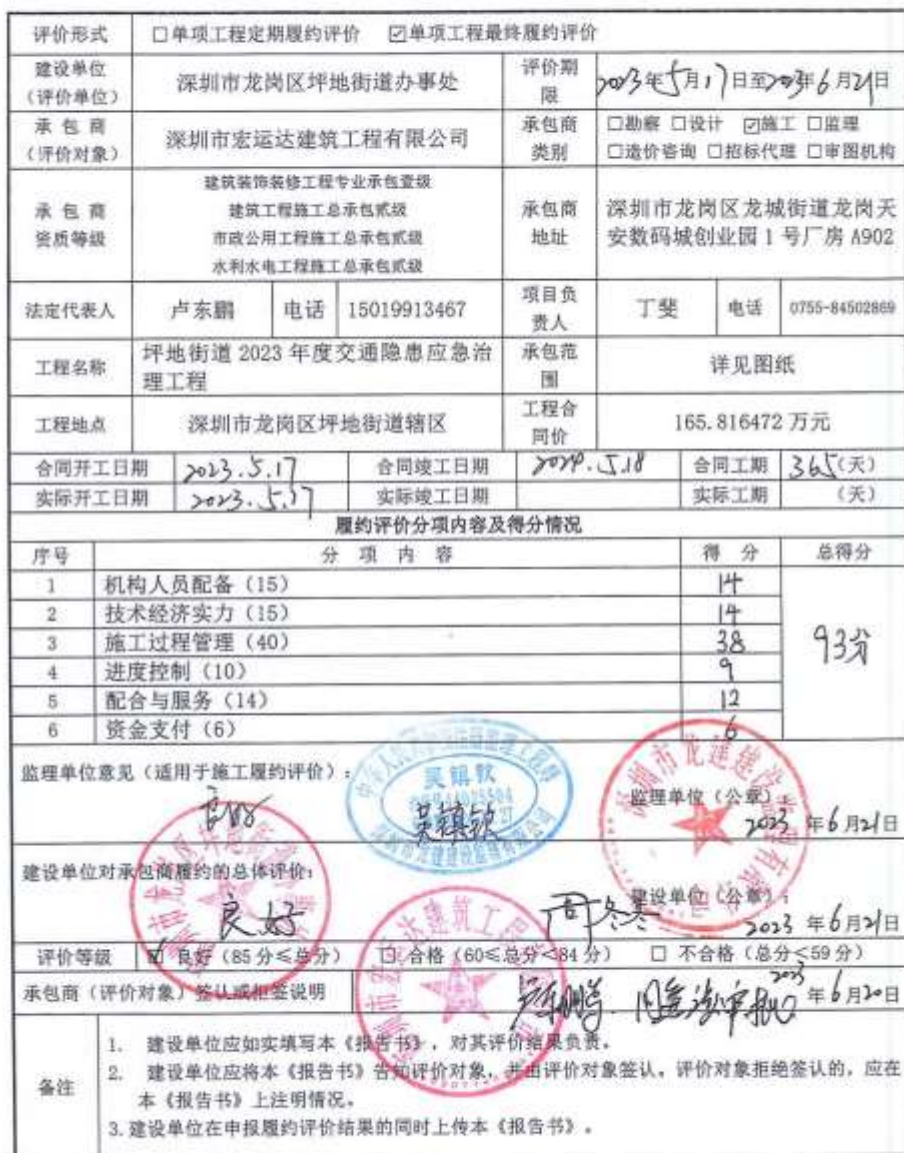 评价形式 □单项工程定期履约评价 ☑单项工程最终履约评价
建设单位（评价单位） 深圳市龙岗区坪地街道办事处 评价期限 2023年5月17日至2023年6月21日
承包商（评价对象） 深圳市宏运达建筑工程有限公司 承包商类别 □勘察 □设计 ☑施工 □监理
□造价咨询 □招标代理 □审图机构
承包商资质等级 建筑装饰装修工程专业承包壹级
建筑工程施工总承包贰级
市政公用工程施工总承包贰级
水利水电工程施工总承包贰级
承包商地址 深圳市龙岗区龙城街道龙岗天
安数码城创业园1号厂房A902
法定代表人 卢东鹏 电话 15019913467 项目负责人 丁斐 电话 0755-84502869
工程名称 坪地街道2023年度交通隐患应急治
理工程 承包范围 详见图纸
工程地点 深圳市龙岗区坪地街道辖区 工程合同价 165.816472万元
合同开工日期 2023.5.17 合同竣工日期 2024.5.18 合同工期 365(天)
实际开工日期 2023.5.17 实际竣工日期 实际工期 (天)
履约评价分项内容及得分情况
序号 分项内容 得分 总得分
1 机构人员配备（15） 14
2 技术经济实力（15） 14
3 施工过程管理（40） 38 93分
4 进度控制（10） 9
5 配合与服务（14） 12
6 资金支付（6） 6
监理单位意见（适用于施工履约评价）：
良好 吴镇钦 监理单位（公章）：
2023年6月21日
建设单位对承包商履约的总体评价：
良好 建设单位（公章）：
2023年6月21日
评价等级 ☑ 良好（85分≤总分） □ 合格（60≤总分<84分） □ 不合格（总分<59分）
承包商（评价对象）签认或拒签说明 卢东鹏 2023年6月20日
备注 1. 建设单位应如实填写本《报告书》，对其评价结果负责。
2. 建设单位应将本《报告书》告知评价对象，并由评价对象签认。评价对象拒绝签认的，应在
本《报告书》上注明情况。
3.建设单位在申报履约评价结果的同时上传本《报告书》。